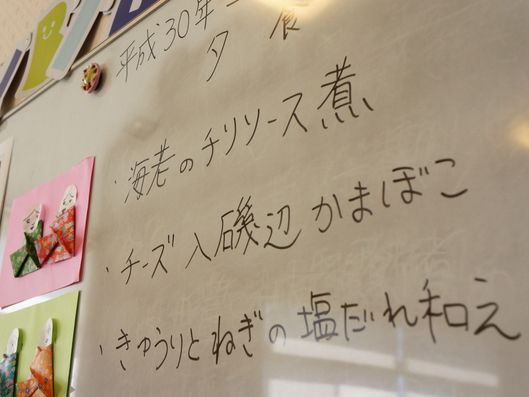 平成30年
夕食
・海老のチリソース煮
・チーズ入磯辺かまぼこ
・きゅうりとねぎの塩だれ和え